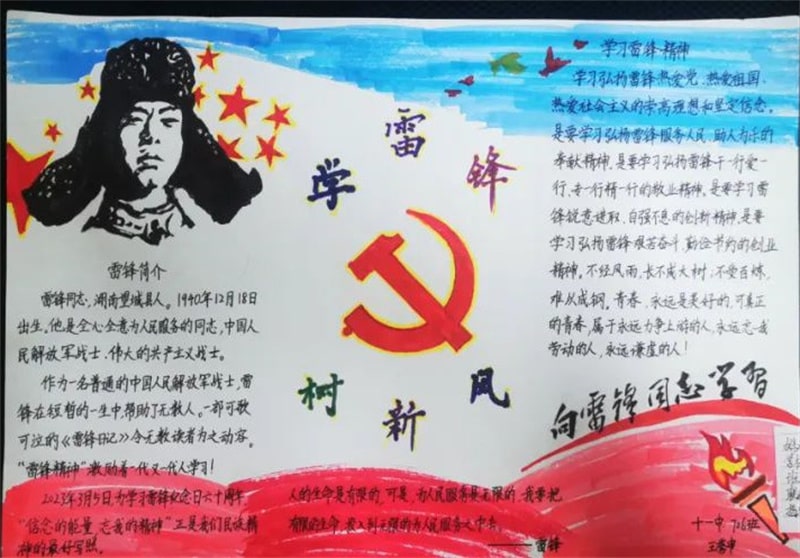 学雷锋
树新风
雷锋简介
雷锋同志,湖南望城县人。1940年12月18日
出生。他是全心全意为人民服务的同志,中国人
民解放军战士、伟大的共产主义战士。
作为一名普通的中国人民解放军战士,雷
锋在短暂的一生中,帮助了无数人。一部可歌
可泣的《雷锋日记》令无数读者为之动容。
“雷锋精神”激励着一代又一代人学习!
2023年3月5日为学习雷锋纪念日六十周年,
“信念的能量,忘我的精神”正是我们民族精
神的最好写照。
学习雷锋精神
学习弘扬雷锋热爱党、热爱祖国、
热爱社会主义的崇高理想和坚定信念。
是要学习弘扬雷锋服务人民、助人为乐的
奉献精神。是要学习弘扬雷锋干一行爱一
行、专一行精一行的敬业精神。是要学习雷
锋锐意进取、自强不息的创新精神。是要
学习弘扬雷锋艰苦奋斗、勤俭节约的创业
精神。不经风雨,长不成大树;不受百炼,
难以成钢。青春,永远是美好的,可真正
的青春,属于永远力争上游的人,永远忘我
劳动的人,永远谦虚的人!
向雷锋同志学习
人的生命是有限的,可是,为人民服务是无限的,我要把
有限的生命,投入到无限的为人民服务之中去。
——雷锋
十一中 706班